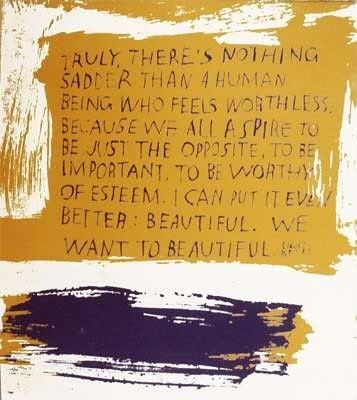 TRULY, THERE'S NOTHING
SADDER THAN A HUMAN
BEING WHO FEELS WORTHLESS.
BECAUSE WE ALL ASPIRE TO
BE JUST THE OPPOSITE, TO BE
IMPORTANT. TO BE WORTHY
OF ESTEEM. I CAN PUT IT EVEN
BETTER: BEAUTIFUL. WE
WANT TO BEAUTIFUL.